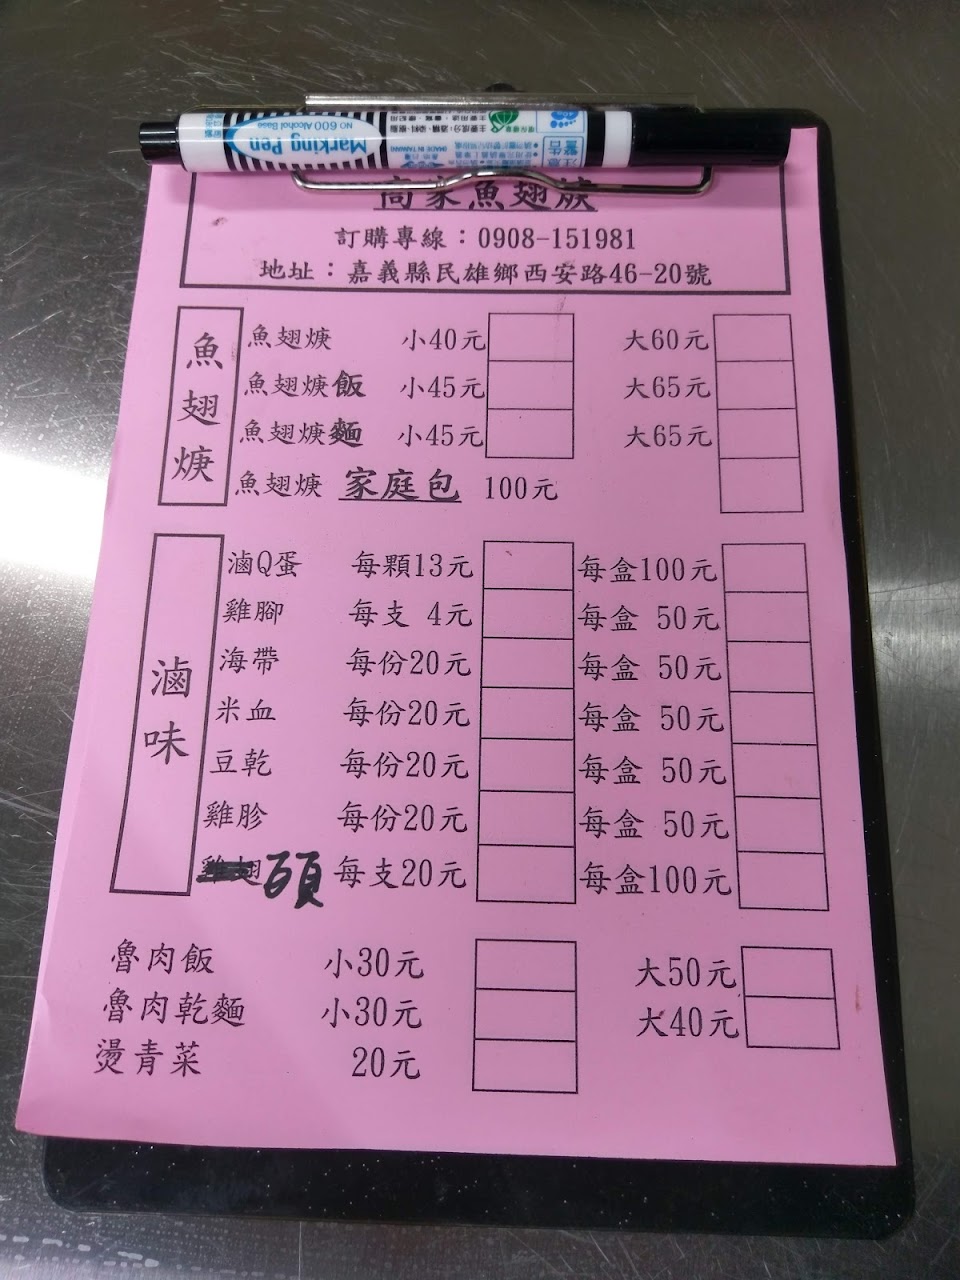 Marking Pen
NO 600 Alcohol Base
MADE IN TAIWAN
高家魚翅焿
訂購專線：0908-151981
地址：嘉義縣民雄鄉西安路46-20號
魚翅焿
魚翅焿 小40元 大60元
魚翅焿飯 小45元 大65元
魚翅焿麵 小45元 大65元
魚翅焿 家庭包 100元
滷味
滷Q蛋 每顆13元 每盒100元
雞腳 每支 4元 每盒 50元
海帶 每份20元 每盒 50元
米血 每份20元 每盒 50元
豆乾 每份20元 每盒 50元
雞胗 每份20元 每盒 50元
雞翅 每支20元 每盒100元
魯肉飯 小30元 大50元
魯肉乾麵 小30元 大40元
燙青菜 20元